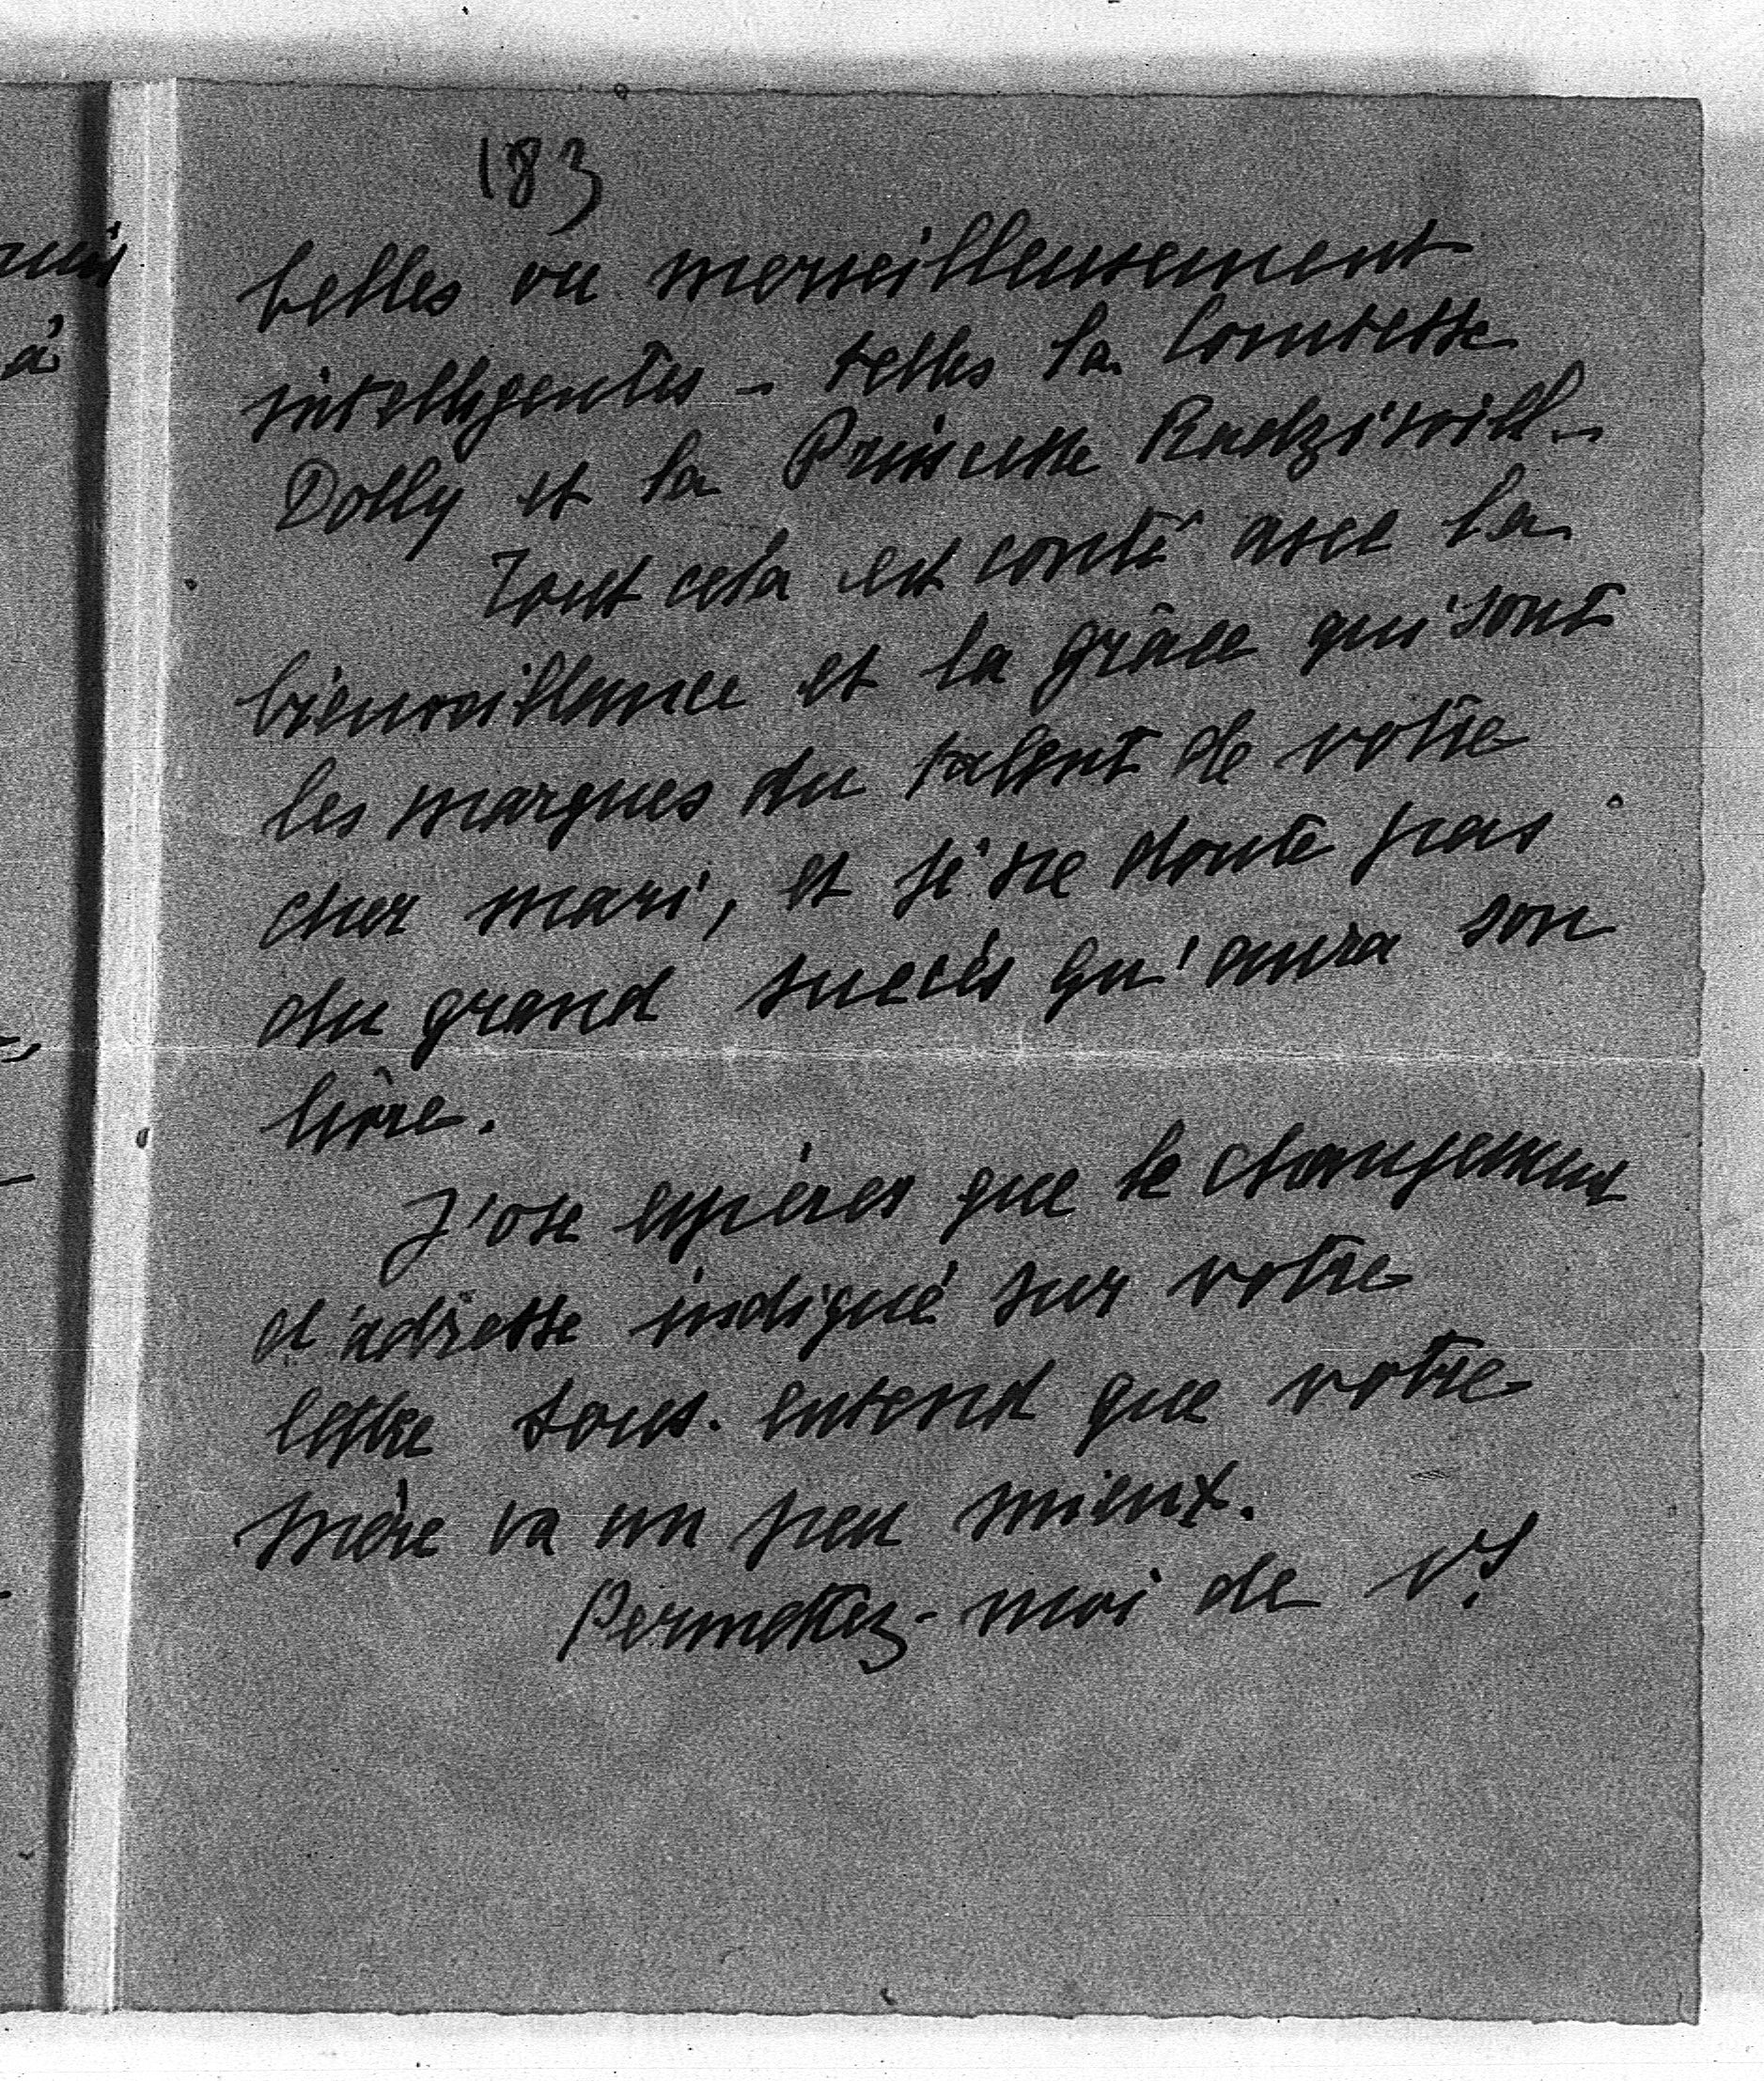 183
belles ou merveilleusement
intelligentes - telles la Comtesse
Dolly et la Princesse Radziwill -
Tout cela est conté avec la
bienveillance et la grâce qui sont
les marques du talent de votre
cher mari, et je ne doute pas
du grand succès qu'aura son
livre.
J'ose espérer que le changement
d'adresse indiqué sur votre
lettre sous-entend que votre
mère va un peu mieux.
Permettez-moi de vs
à